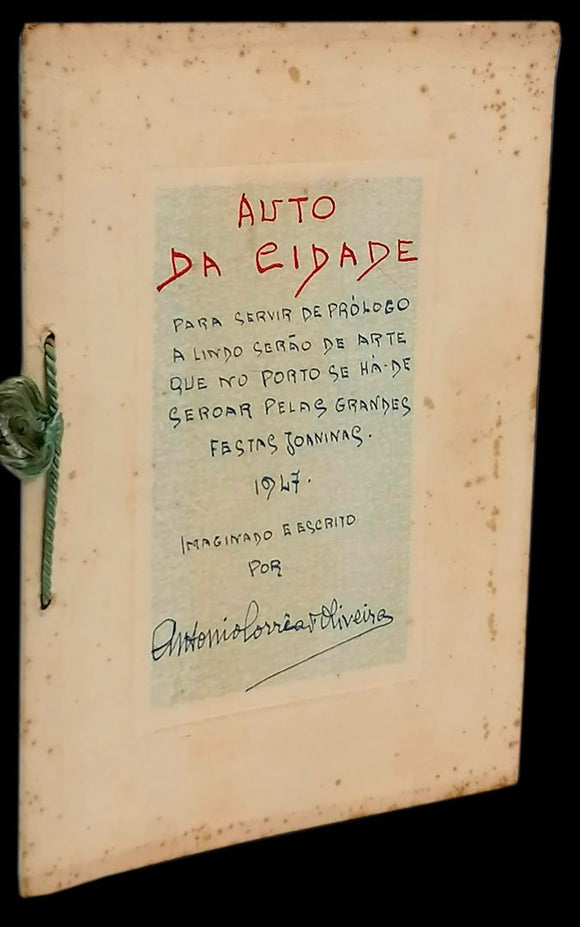 AUTO
DA CIDADE
PARA SERVIR DE PRÓLOGO
A LINDO SERÃO DE ARTE
QUE NO PORTO SE HÁ-DE
SEROAR PELAS GRANDES
FESTAS JOANINAS.
1947.
IMAGINADO E ESCRITO
POR
Antonio Corrêa d'Oliveira